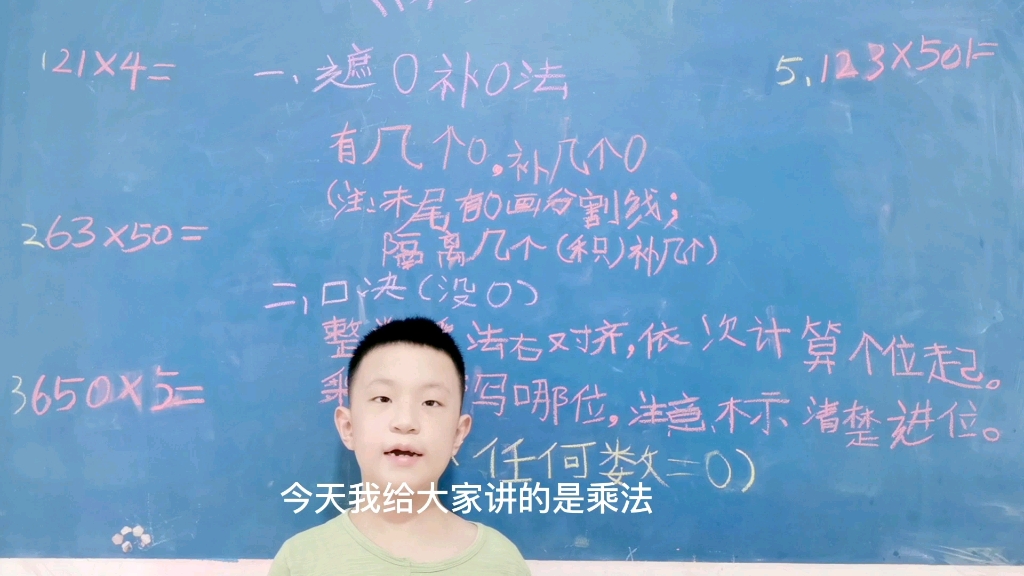 121×4=
一、遮0补0法
5.123×501=
有几个0,补几个0
(注:末尾有0画分割线;
隔离几个(积)补几个)
263×50=
二、口决(没0)
整 法右对齐,依次计算个位起。
3650×5=
乘 写哪位,注意标示清楚进位。
任何数=0)
今天我给大家讲的是乘法